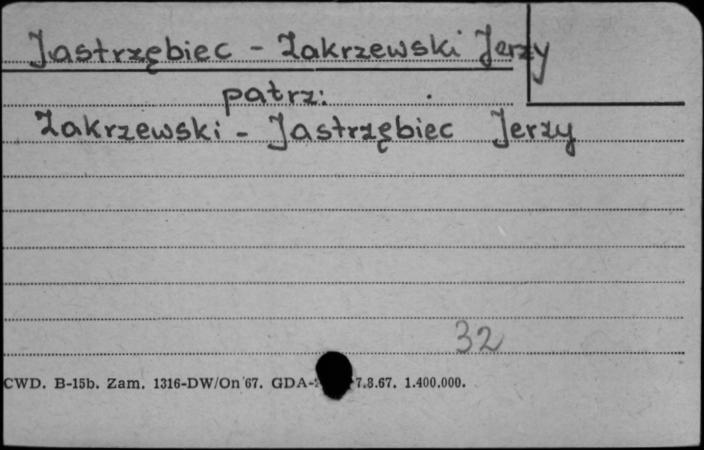 Jastrzębiec - Zakrzewski Jerzy
patrz:
Zakrzewski - Jastrzębiec Jerzy
32
CWD. B-15b. Zam. 1316-DW/On 67. GDA- 7.8.67. 1.400.000.